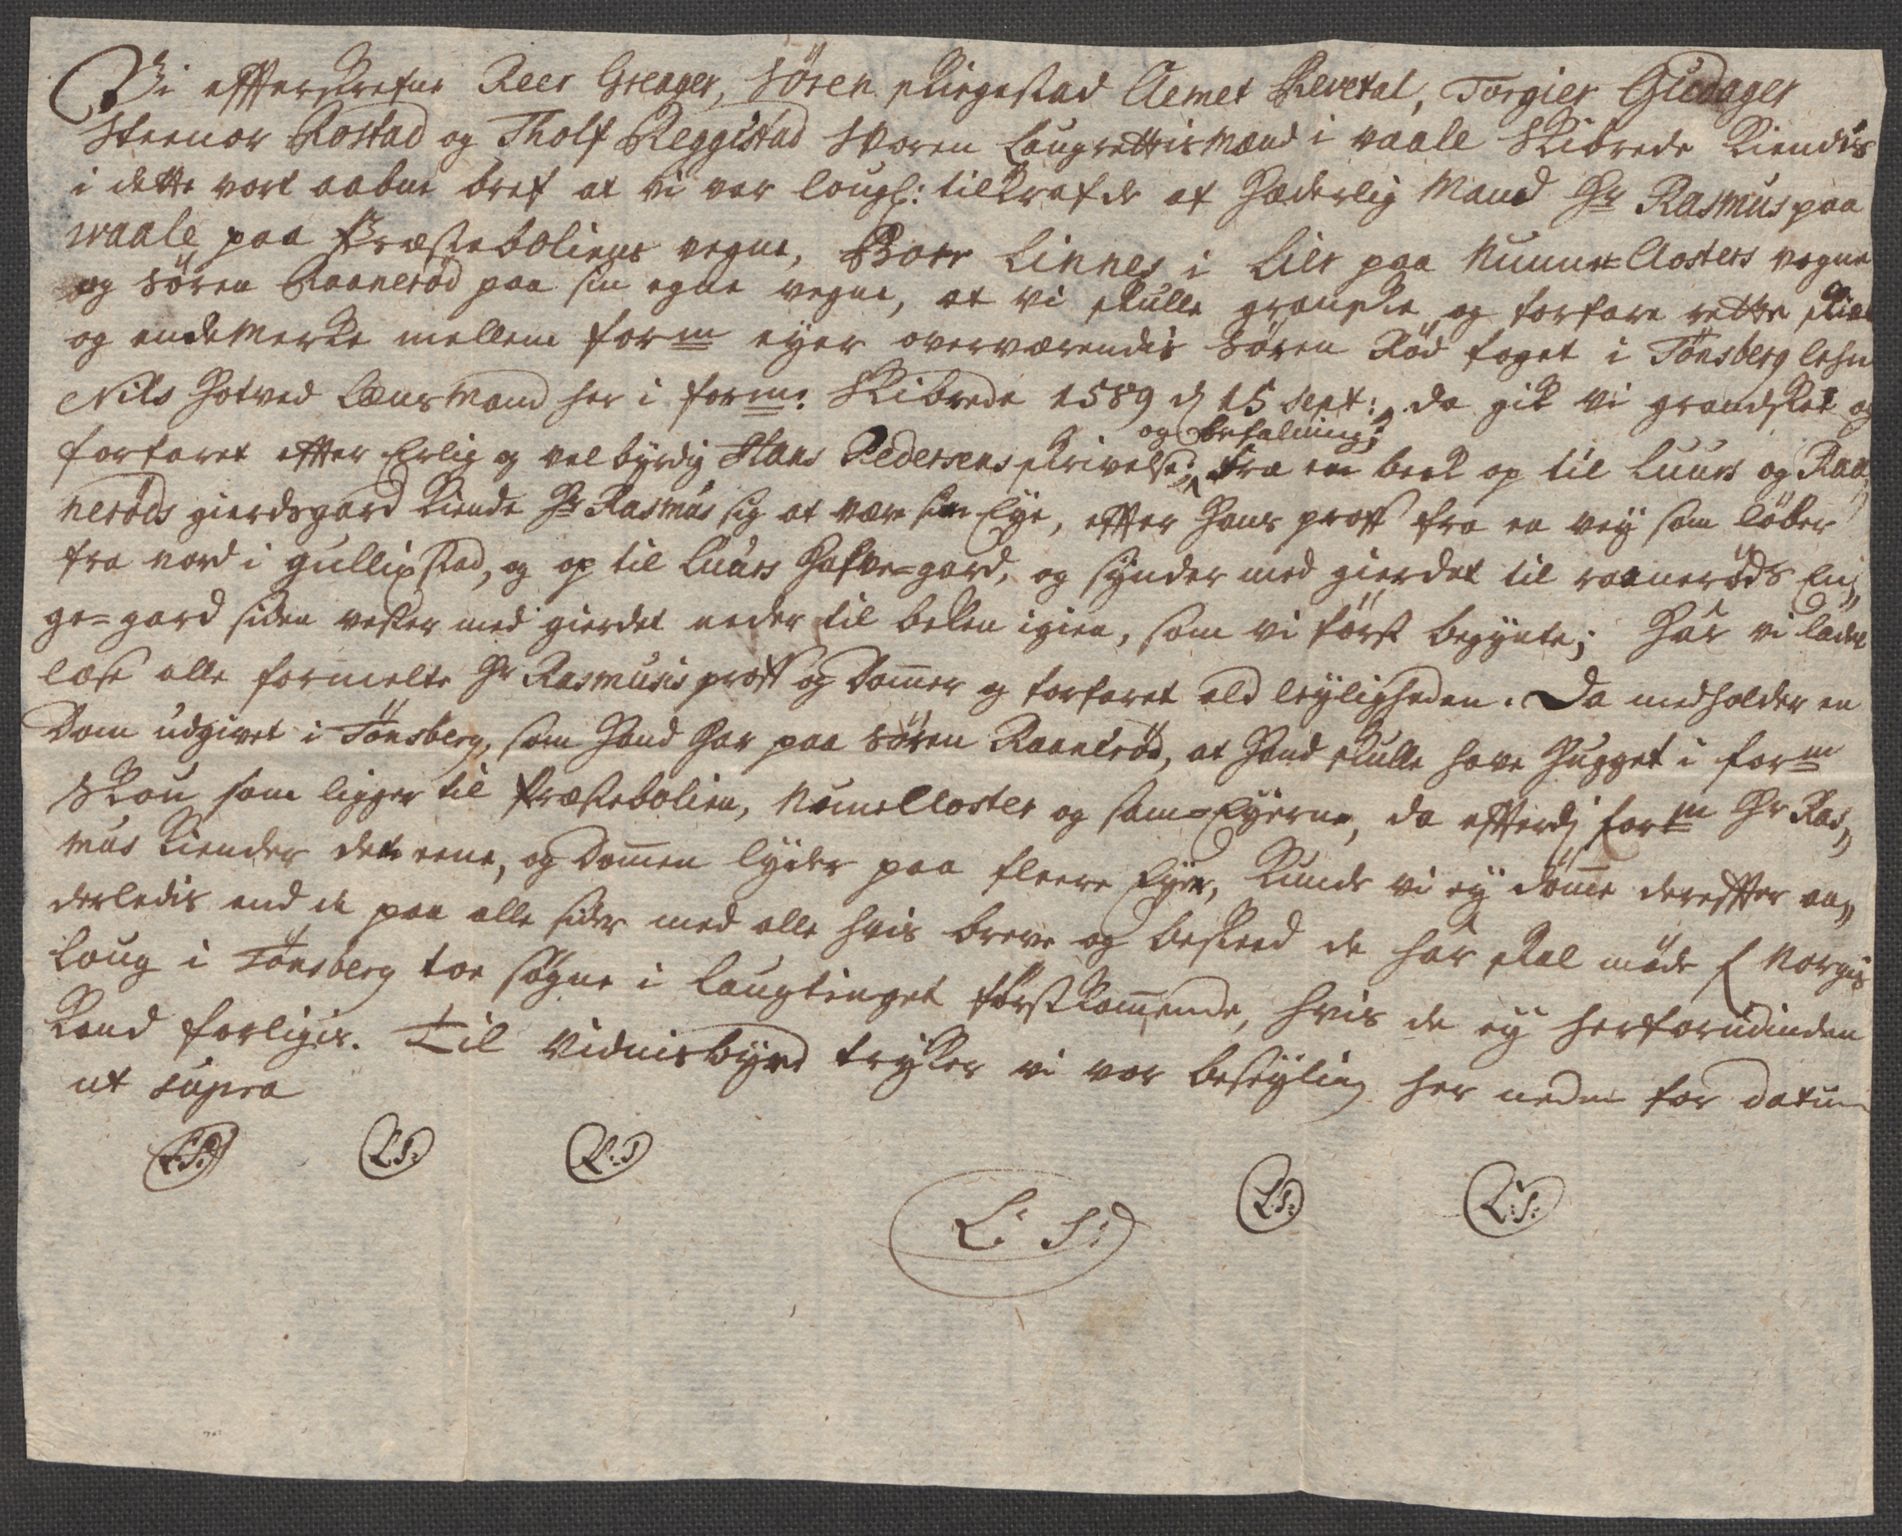 Vi effterskrefne Reer Greager, Sören Ringestad Aemet Revetal, Torgier Gudager
Steenor Rostad og Tholf Reggistad Svoren Laugrettismænd i vaale Skibrede Kiendis
i dette vort aabne bref at vi var lougl: tilkrafde af Hæderlig Mand Hr Rasmus paa
waale paa Præsteboliens vegne, Boer Linnes i Lier paa Nunne=Closters vegne
og Sören Raaneröd paa sin egne vegne, at vi skulle granske og forfare rette skiel
og ende Merke mellem form eyer overværendis Sören Röd foget i Tönsberg lehn
Nils Hotved Lænsmand her i form: Skibrede 1589 d 15 Sept: da gik vi grandsket og
forfaret effter Erlig og velbyrdig Hans Pedersens skrivelse
og befalning;
fra en bek op til Luurs og Raa„
neröds gierdsgard Kiende Hr Rasmus sig at være sin Eye, effter Hans proff fra en vey som löber
fra nord i gullixstad, og op til Luurs Hafve=gard, og synder med gierdet til raaneröds En„
ge=gard siden vester med gierdet neder til beken igien, som vi först begynte; Har vi ladet
læse alle formelte Hr Rasmusis proff og Dommer og forfaret ald leyligheden. Da medholder en
Dom udgivet i Tönsberg, som Hand har paa Sören Raaneröd, at Hand skulle have Hugget i form
Skou som ligger til Præstebolien, Nunne Closter og sam=Eyerne, da efferdj form Hr Ras„
mus Kiender det eene, og Dommen lyder paa fleere Eyer, Kunde vi ey dömme dereffter an„
derledis end de paa alle sider med alle hvis breve og beskeed de har skal möde f Norgis
Loug i Tönsberg toe sögne i Laugtinget först Kommende, hvis de ey herforudinden
Kand forligis. Til Vidnisbyrd trykker vi vor beseyling her neden for datum
ut supra
L.S. L.S: L:S
L: S: L:S: L:S: